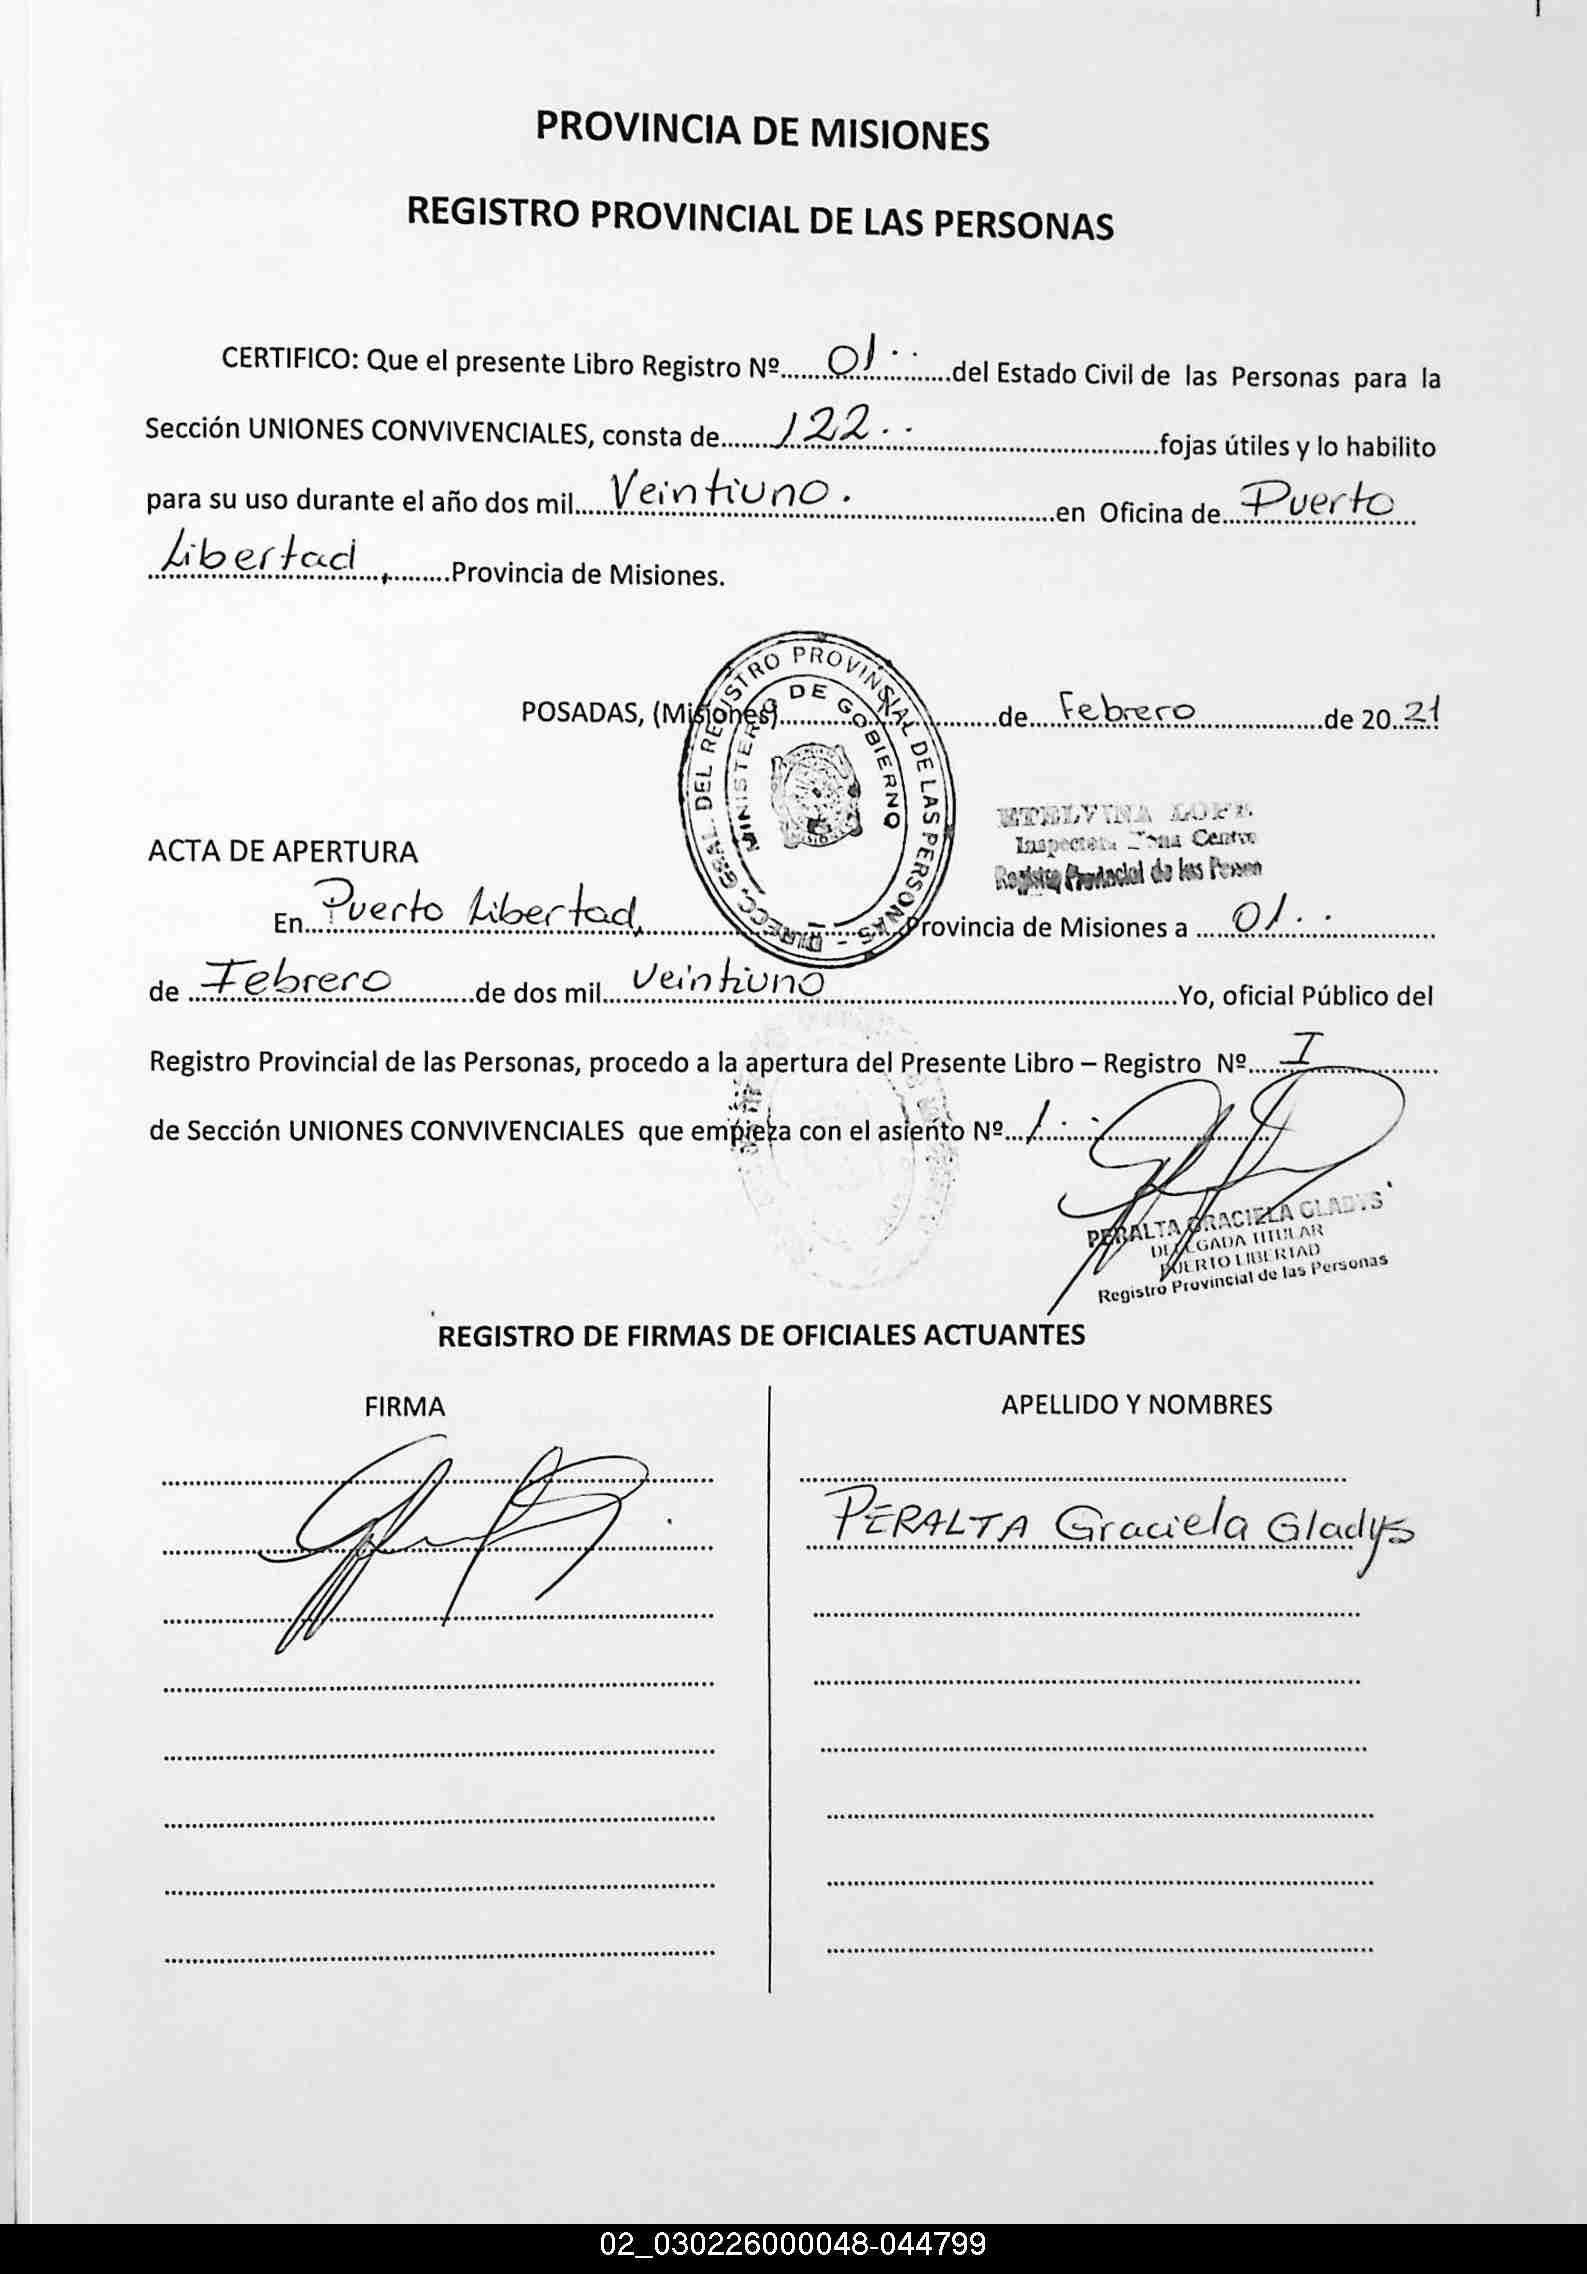 PROVINCIA DE MISIONES
REGISTRO PROVINCIAL DE LAS PERSONAS
CERTIFICO: Que el presente Libro Registro Nº......01..........del Estado Civil de las Personas para la
Sección UNIONES CONVIVENCIALES, consta de.......122..........fojas útiles y lo habilito
para su uso durante el año dos mil.....Veintiuno...........en Oficina de...Puerto
Libertad,.........Provincia de Misiones.
DIRECC. GRAL. DEL REGISTRO PROVINCIAL DE LAS PERSONAS -
MINISTERIO DE GOBIERNO
POSADAS, (Misiones)..................de.....Febrero...............de 20..21
Inspectora Zona Centro
Registro Provincial de las Person
ACTA DE APERTURA
En...Puerto Libertad,...............Provincia de Misiones a .....01...........
de ...Febrero............de dos mil....Veintiuno...............Yo, oficial Público del
Registro Provincial de las Personas, procedo a la apertura del Presente Libro – Registro Nº.....I...........
de Sección UNIONES CONVIVENCIALES que empieza con el asiento Nº...1...........
PERALTA GRACIELA GLADYS
DELEGADA TITULAR
PUERTO LIBERTAD
Registro Provincial de las Personas
REGISTRO DE FIRMAS DE OFICIALES ACTUANTES
FIRMA
APELLIDO Y NOMBRES
PERALTA Graciela Gladys
02_030226000048-044799